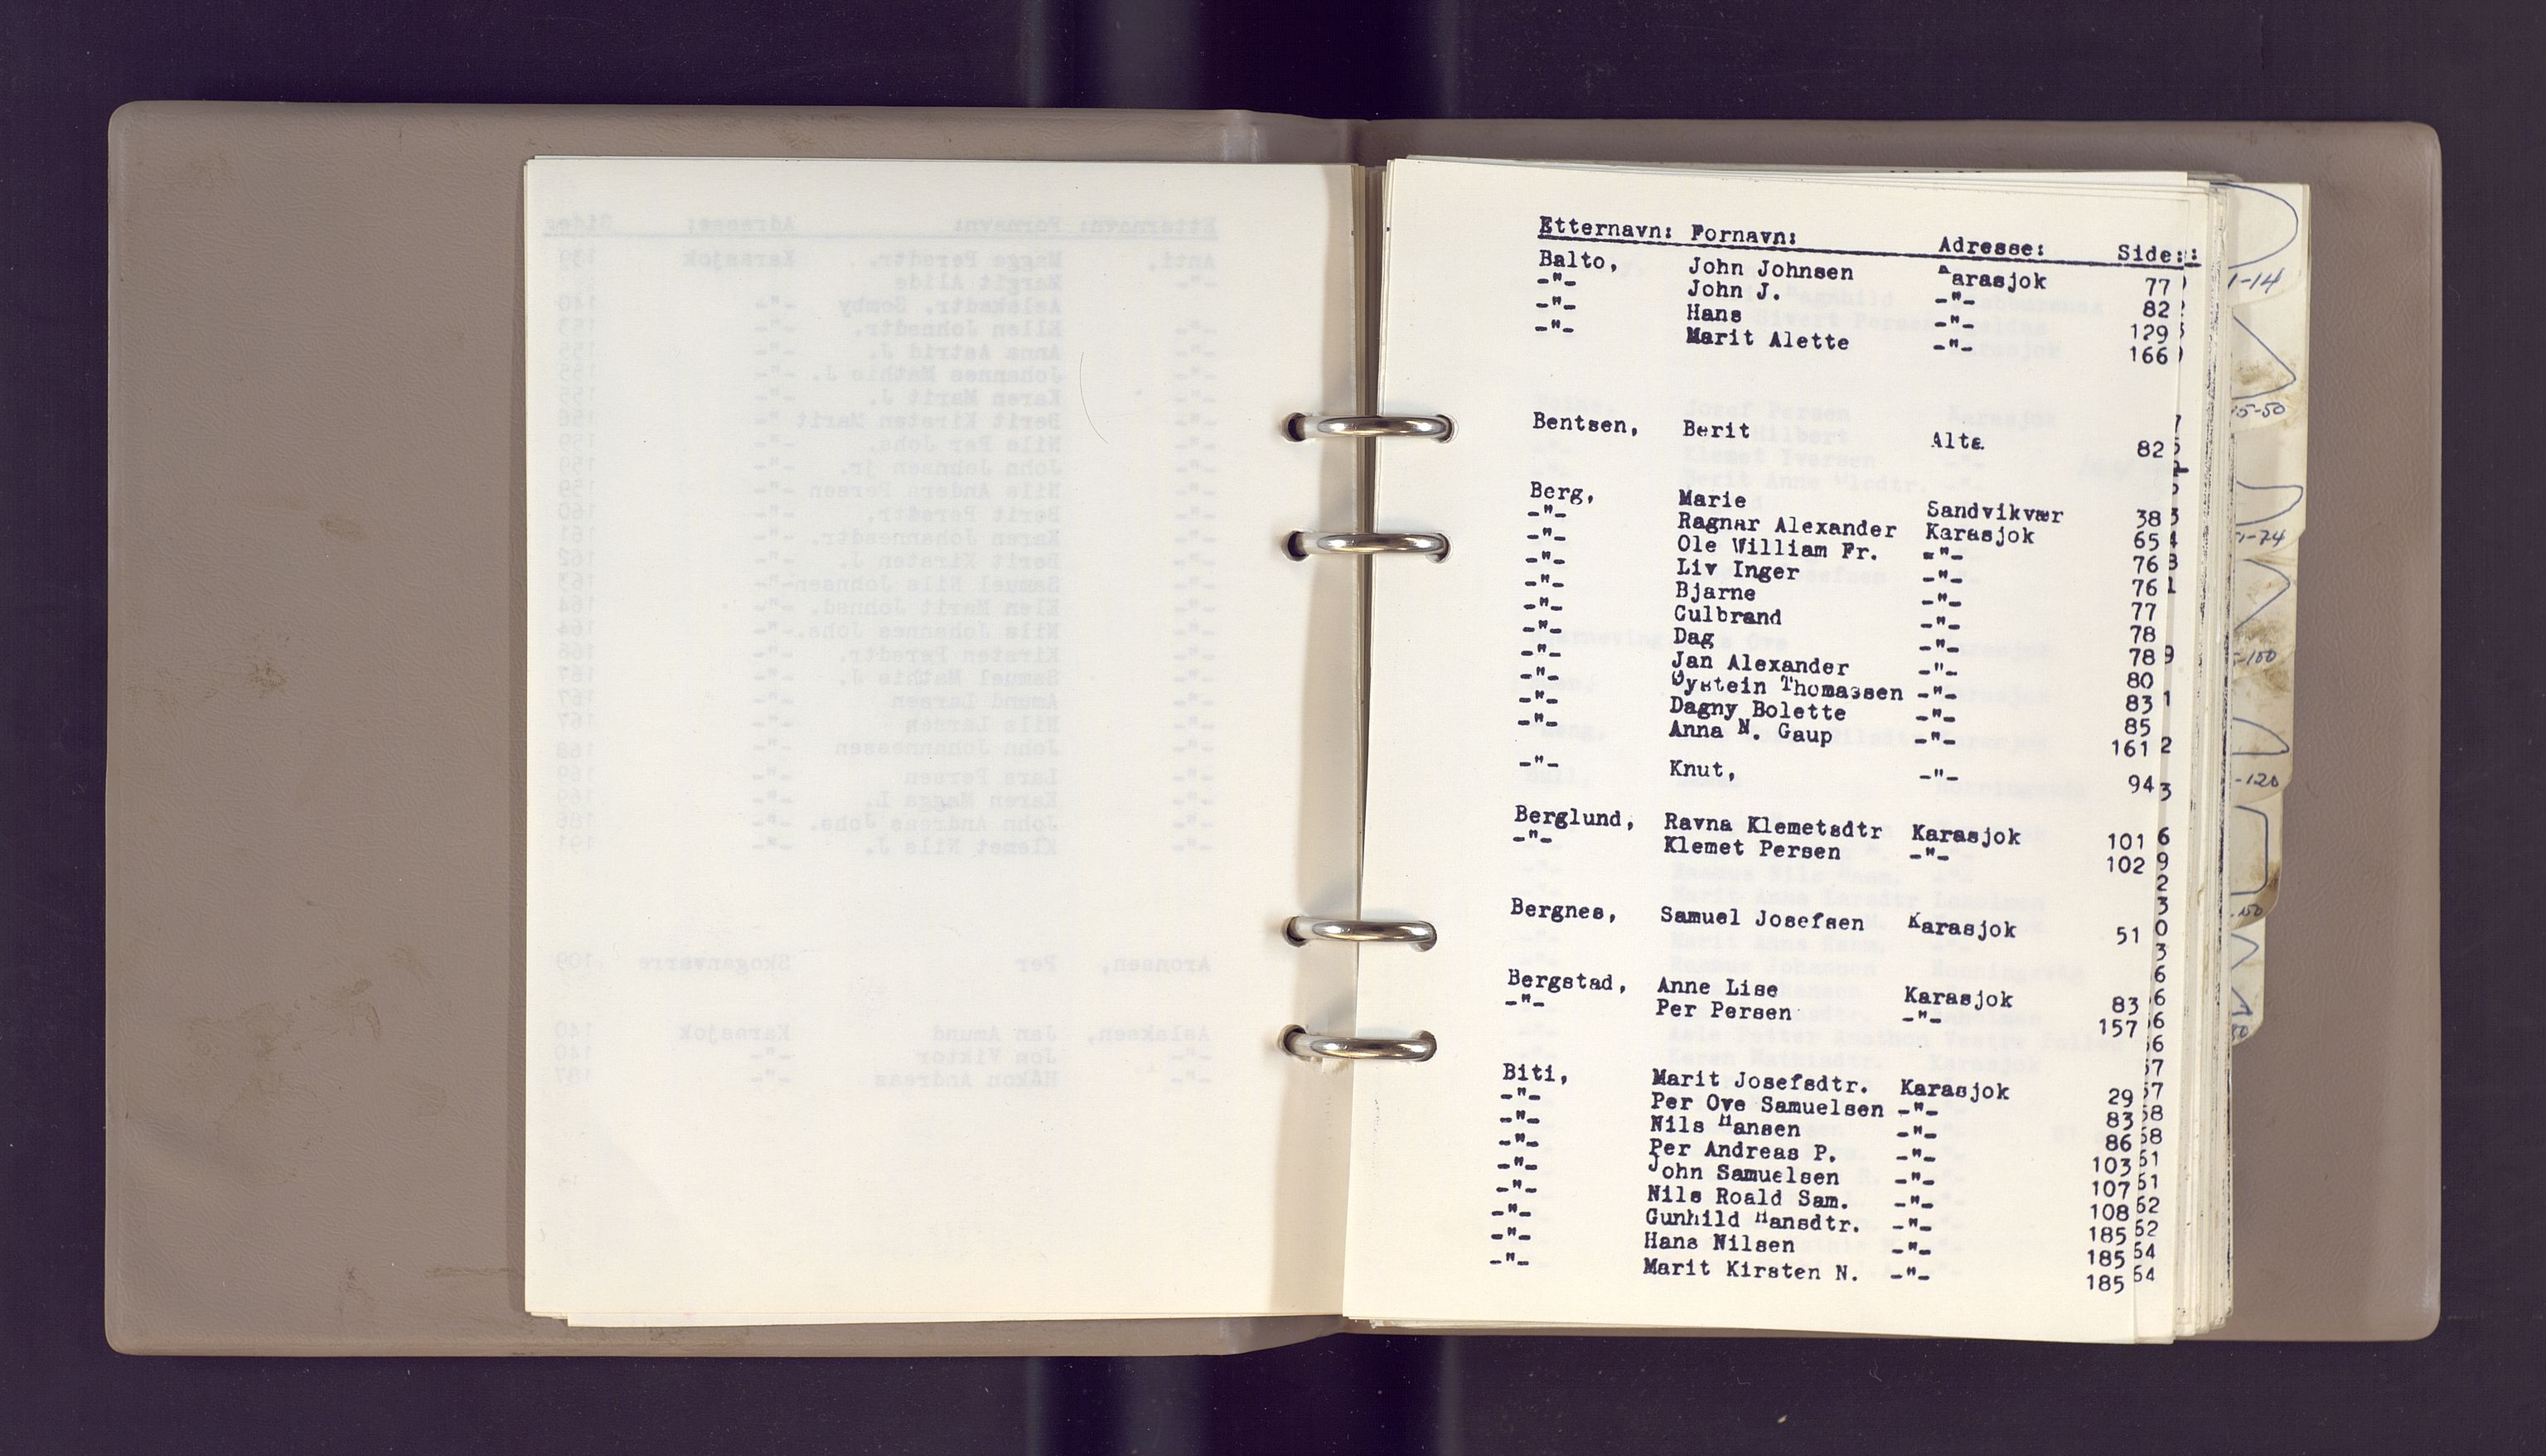 Etternavn: Fornavn: Adresse: Side:
Balto, John Johnsen Karasjok 77
-"- John J. -"- 82
-"- Hans -"- 129
-"- Marit Alette -"- 166
Bentsen, Berit Alta 82
Berg, Marie Sandvikvær 38
-"- Ragnar Alexander Karasjok 65
-"- Ole William Fr. -"- 76
-"- Liv Inger -"- 76
-"- Bjarne -"- 77
-"- Gulbrand -"- 78
-"- Dag -"- 78
-"- Jan Alexander -"- 80
-"- Øystein Thomassen -"- 83
-"- Dagny Bolette -"- 85
-"- Anna N. Gaup -"- 161
-"- Knut, -"- 94
Berglund, Ravna Klemetsdtr Karasjok 101
-"- Klemet Persen -"- 102
Bergnes, Samuel Josefsen Karasjok 51
Bergstad, Anne Lise Karasjok 83
-"- Per Persen -"- 157
Biti, Marit Josefsdtr. Karasjok 29
-"- Per Ove Samuelsen -"- 83
-"- Nils Hansen -"- 86
-"- Per Andreas P. -"- 103
-"- John Samuelsen -"- 107
-"- Nils Roald Sam. -"- 108
-"- Gunhild Hansdtr. -"- 185
-"- Hans Nilsen -"- 185
-"- Marit Kirsten N. -"- 185
1-14
15-50
-74
-100
-120
150